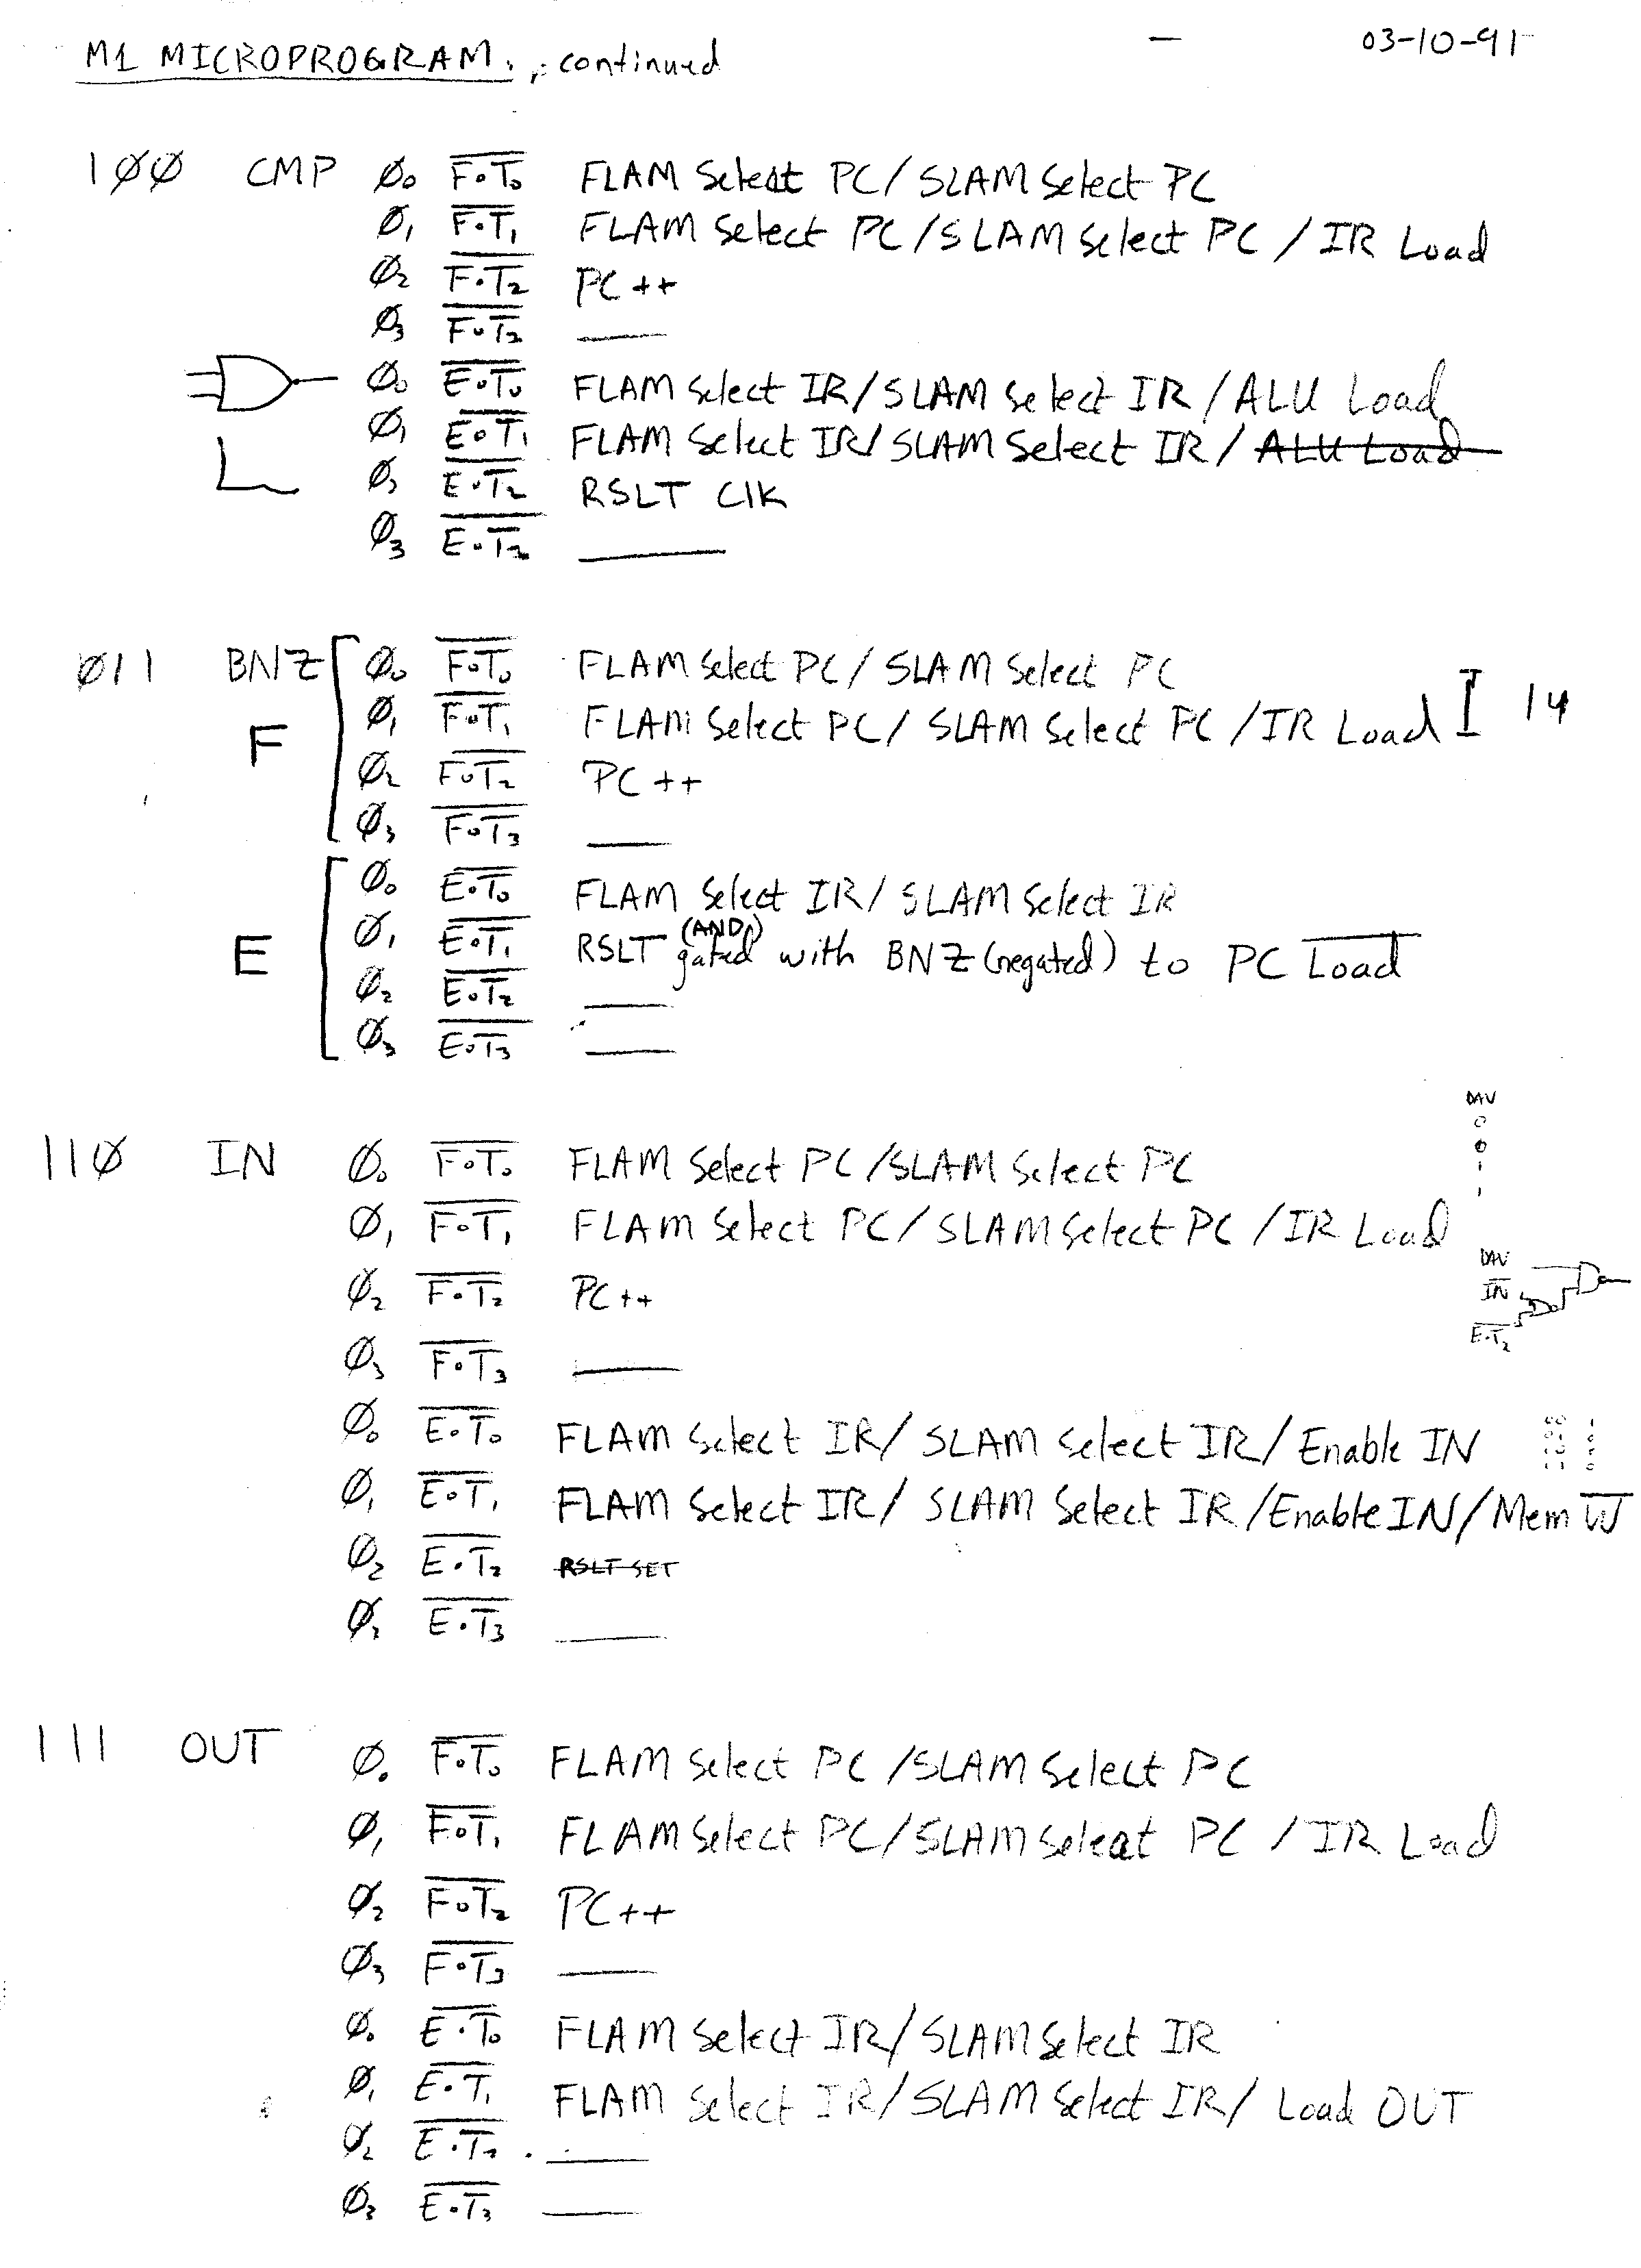 M1 MICROPROGRAM, continued 03-10-91
1ØØ CMP Ø₀ F·T₀ FLAM Select PC/SLAM Select PC
Ø₁ F·T₁ FLAM Select PC/SLAM Select PC/IR Load
Ø₂ F·T₂ PC++
Ø₃ F·T₃ ——
Ø₀ E·T₀ FLAM Select IR/SLAM Select IR/ALU Load
Ø₁ E·T₁ FLAM Select IR/SLAM Select IR/ALU Load
Ø₂ E·T₂ RSLT Clk
Ø₃ E·T₃ ——
Ø11 BNZ Ø₀ F·T₀ FLAM Select PC/SLAM Select PC
F Ø₁ F·T₁ FLAM Select PC/SLAM Select PC/IR Load I 14
Ø₂ F·T₂ PC++
Ø₃ F·T₃ ——
Ø₀ E·T₀ FLAM Select IR/SLAM Select IR
E Ø₁ E·T₁ RSLT (AND) gated with BNZ (negated) to PC Load
Ø₂ E·T₂ ——
Ø₃ E·T₃ ——
DAV
0
0
1
1
11Ø IN Ø₀ F·T₀ FLAM Select PC/SLAM Select PC
Ø₁ F·T₁ FLAM Select PC/SLAM Select PC/IR Load
DAV
IN
E·T₂
Ø₂ F·T₂ PC++
Ø₃ F·T₃ ——
Ø₀ E·T₀ FLAM Select IR/SLAM Select IR/Enable IN
Ø₁ E·T₁ FLAM Select IR/SLAM Select IR/Enable IN/Mem W
Ø₂ E·T₂ RSLT SET
Ø₃ E·T₃ ——
111 OUT Ø₀ F·T₀ FLAM Select PC/SLAM Select PC
Ø₁ F·T₁ FLAM Select PC/SLAM Select PC/IR Load
Ø₂ F·T₂ PC++
Ø₃ F·T₃ ——
Ø₀ E·T₀ FLAM Select IR/SLAM Select IR
Ø₁ E·T₁ FLAM Select IR/SLAM Select IR/Load OUT
Ø₂ E·T₂ ——
Ø₃ E·T₃ ——